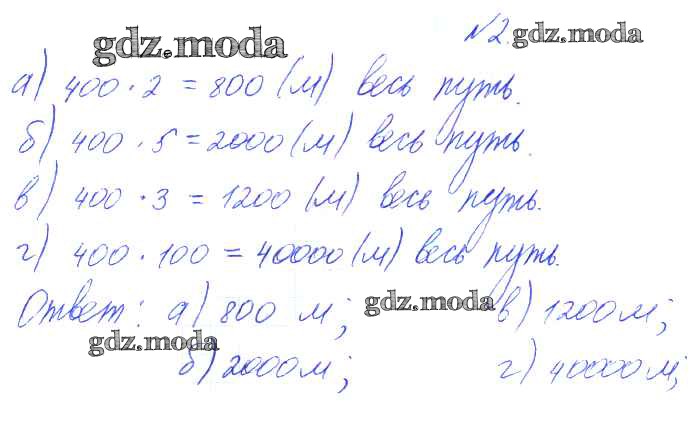 №2.
gdz.moda gdz.moda
а) 400 · 2 = 800 (м) весь путь.
б) 400 · 5 = 2000 (м) весь путь.
в) 400 · 3 = 1200 (м) весь путь.
г) 400 · 100 = 40000 (м) весь путь.
Ответ: а) 800 м; gdz.moda в) 1200 м;
gdz.moda
б) 2000 м; г) 40000 м;